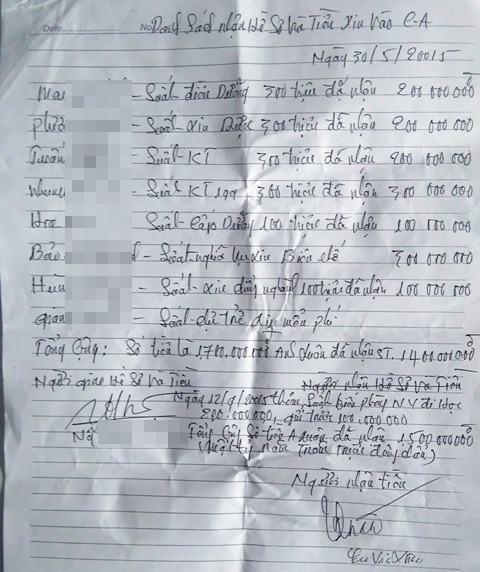 Date No Danh Sách nhận Hồ Sơ Và Tiền Xin Vào C-A
Ngày 30/5/20015
Mai - Suất điều Dưỡng 300 triệu đã nhận 200 000 000đ
Phươ - Suất xin Dược 300 triệu đã nhận 200 000 000
Tuấn - Suất KT 300 triệu đã nhận 200 000 000
Nhung - Suất KT 199 300 triệu đã nhận 300 000 000
Hoa Suất Cấp Dưỡng 100 triệu đã nhận 100 000 000
Bảo - Suất nghĩa Vụ xin Biên chế 300 000 000
Hiền - Suất xin đúng ngành 100 triệu đã nhận 100 000 000
- Suất dự trữ miễn phí
Tổng Cộng: Số tiền là 1.700.000.000đ Anh Xuân đã nhận ST. 1400 000 000đ
Người giao Hồ Sơ Và Tiền Người nhận Hồ Sơ Và Tiền
Ngày 12/9/20015 thêm Suất đi Học
200.000.000, gửi trước 100.000.000
Tổng Cộng Số tiền A Xuân đã nhận 1500 000 000đ
(Một tỷ năm trăm triệu đồng)
Người nhận tiền